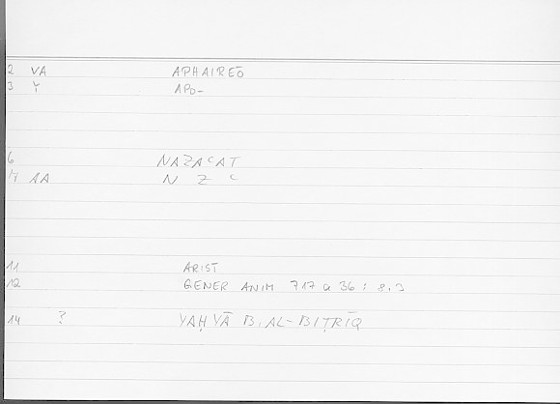 2 VA APHAIREŌ
3 Y APO-
6 NAZAʿAT
7 AA N Z ʿ
11 ARIST
12 GENER ANIM 717 a 36 : 8.3
14 ? YAḤYĀ B. AL-BIṬRĪQ